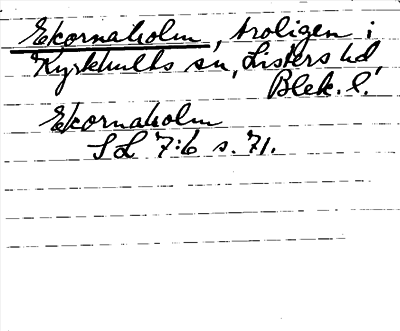 Ekornaholm, troligen i
Kyrkhults sn, Listers hd,
Blek. l.
Ekornaholm
SL 7:6 s. 71.